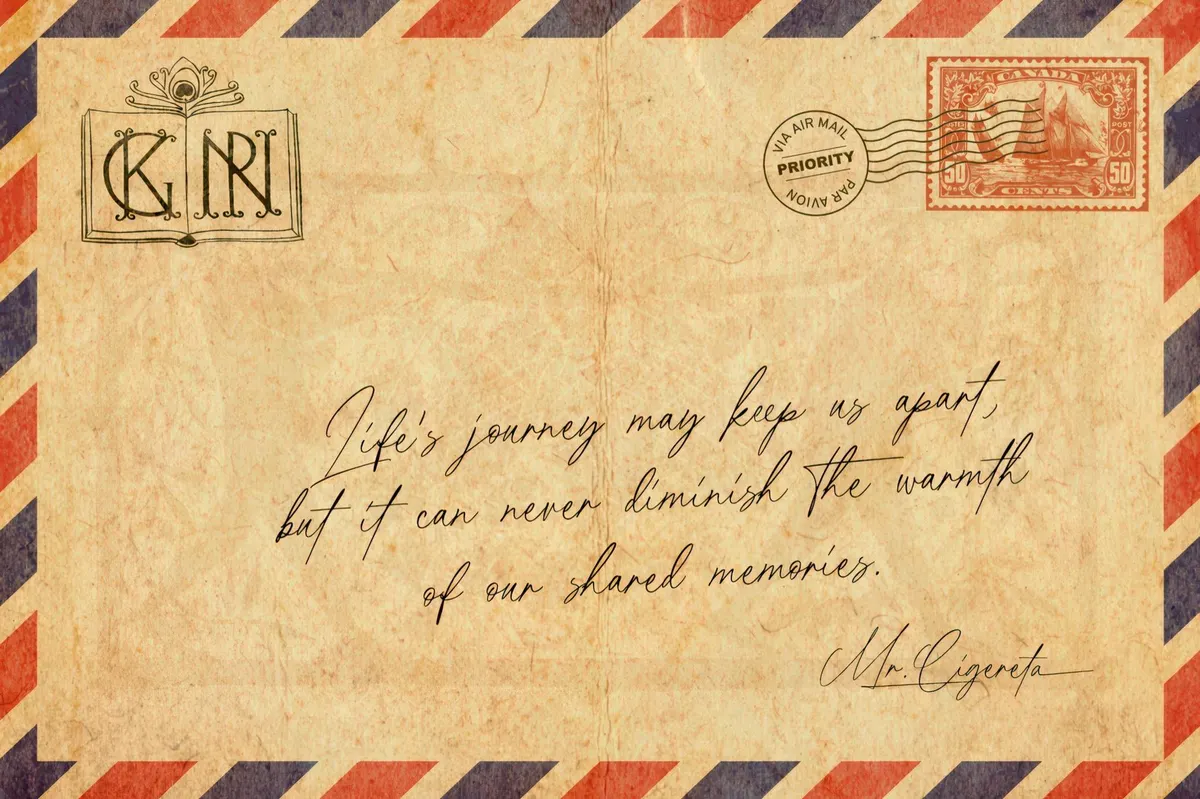 KG NR
CANADA
VIA AIR MAIL
PRIORITY
PAR AVION
POST
50 50
CENTS
Life's journey may keep us apart,
but it can never diminish the warmth
of our shared memories.
Mr. Cigereta